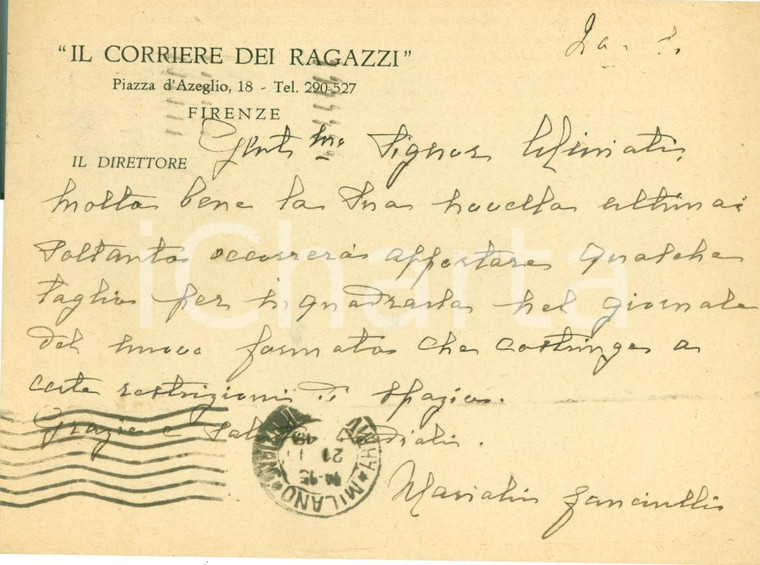 "IL CORRIERE DEI RAGAZZI"
Piazza d'Azeglio, 18 - Tel. 290-527
FIRENZE
IL DIRETTORE
Gent.mo Signor Miniati,
molto bene la Sua novella ultima:
soltanto occorrerà apportare qualche
taglio per inquadrarla nel giornale
dal nuovo formato che costringe a
certe restrizioni di spazio.
Grazie e saluti cordiali.
MILANO
14-15
21
iCharta